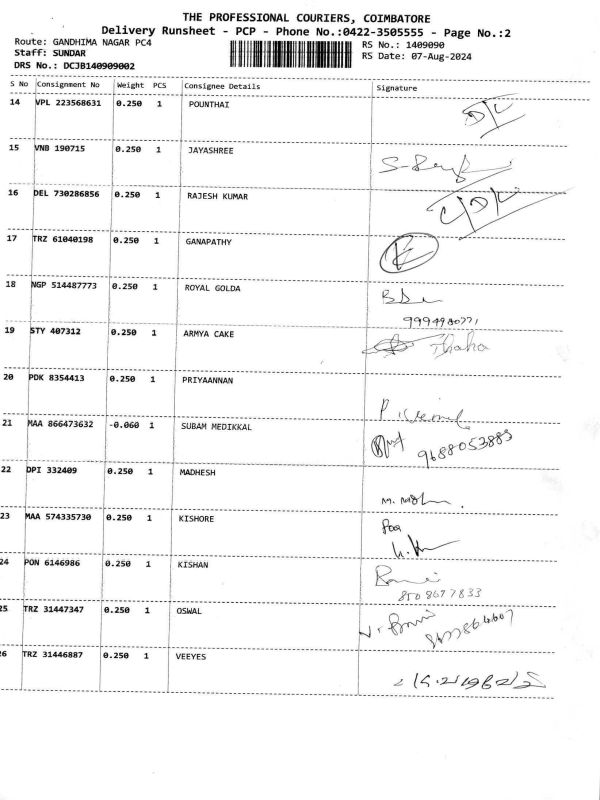 THE PROFESSIONAL COURIERS, COIMBATORE
Delivery Runsheet - PCP - Phone No.:0422-3505555 - Page No.:2
Route: GANDHIMA NAGAR PC4
RS No.: 1409090
Staff: SUNDAR
RS Date: 07-Aug-2024
DRS No.: DCJB140909002
S No Consignment No Weight PCS Consignee Details Signature
14 VPL 223568631 0.250 1 POUNTHAI D/L
15 VNB 190715 0.250 1 JAYASHREE
16 DEL 730286856 0.250 1 RAJESH KUMAR
17 TRZ 61040198 0.250 1 GANAPATHY
18 NGP 514487773 0.250 1 ROYAL GOLDA
9994980771
19 STY 407312 0.250 1 ARMYA CAKE Thaha
20 PDK 8354413 0.250 1 PRIYAANNAN
21 MAA 866473632 -0.060 1 SUBAM MEDIKKAL
9688053883
22 DPI 332409 0.250 1 MADHESH
23 MAA 574335730 0.250 1 KISHORE
24 PON 6146986 0.250 1 KISHAN
8508677833
25 TRZ 31447347 0.250 1 OSWAL
26 TRZ 31446887 0.250 1 VEEYES